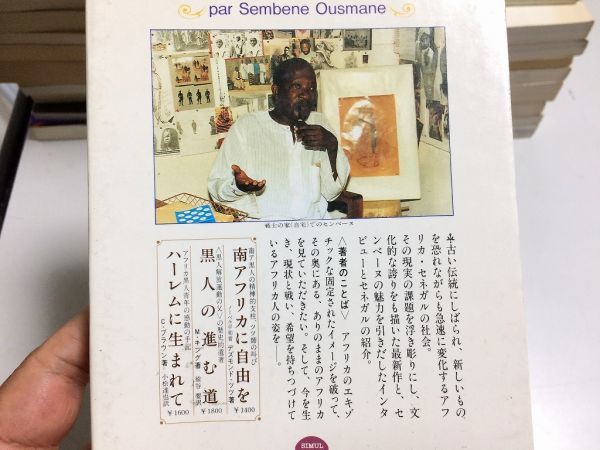 par Sembene Ousmane
戦士の家(自宅)でのセンベーヌ
*古い伝統にしばられ、新しいもの
を恐れながらも急速に変化するアフ
リカ・セネガルの社会。
その現実の課題を浮き彫りにし、文
化的な誇りをも描いた最新作と、セ
ンベーヌの魅力を引きだしたインタ
ビューとセネガルの紹介。
〈著者のことば〉 アフリカのエキゾ
チックな固定されたイメージを破って、
その奥にある、ありのままのアフリカ
を見ていただきたい。そして、今を生
き、現状と戦い、希望を持ちつづけて
いるアフリカ人の姿を——。
南ア黒人の精神的支柱・ツツ師の叫び
南アフリカに自由を
ノーベル平和賞 デズモンド・ツツ著
¥1400
〈黒人解放運動の父〉の歴史的遺著
黒人の進む道
M・キング著 猿谷 要訳
¥1800
アメリカ黒人青年の感動の手記
ハーレムに生まれて
C・ブラウン著 小松達也訳
¥1600
SIMUL